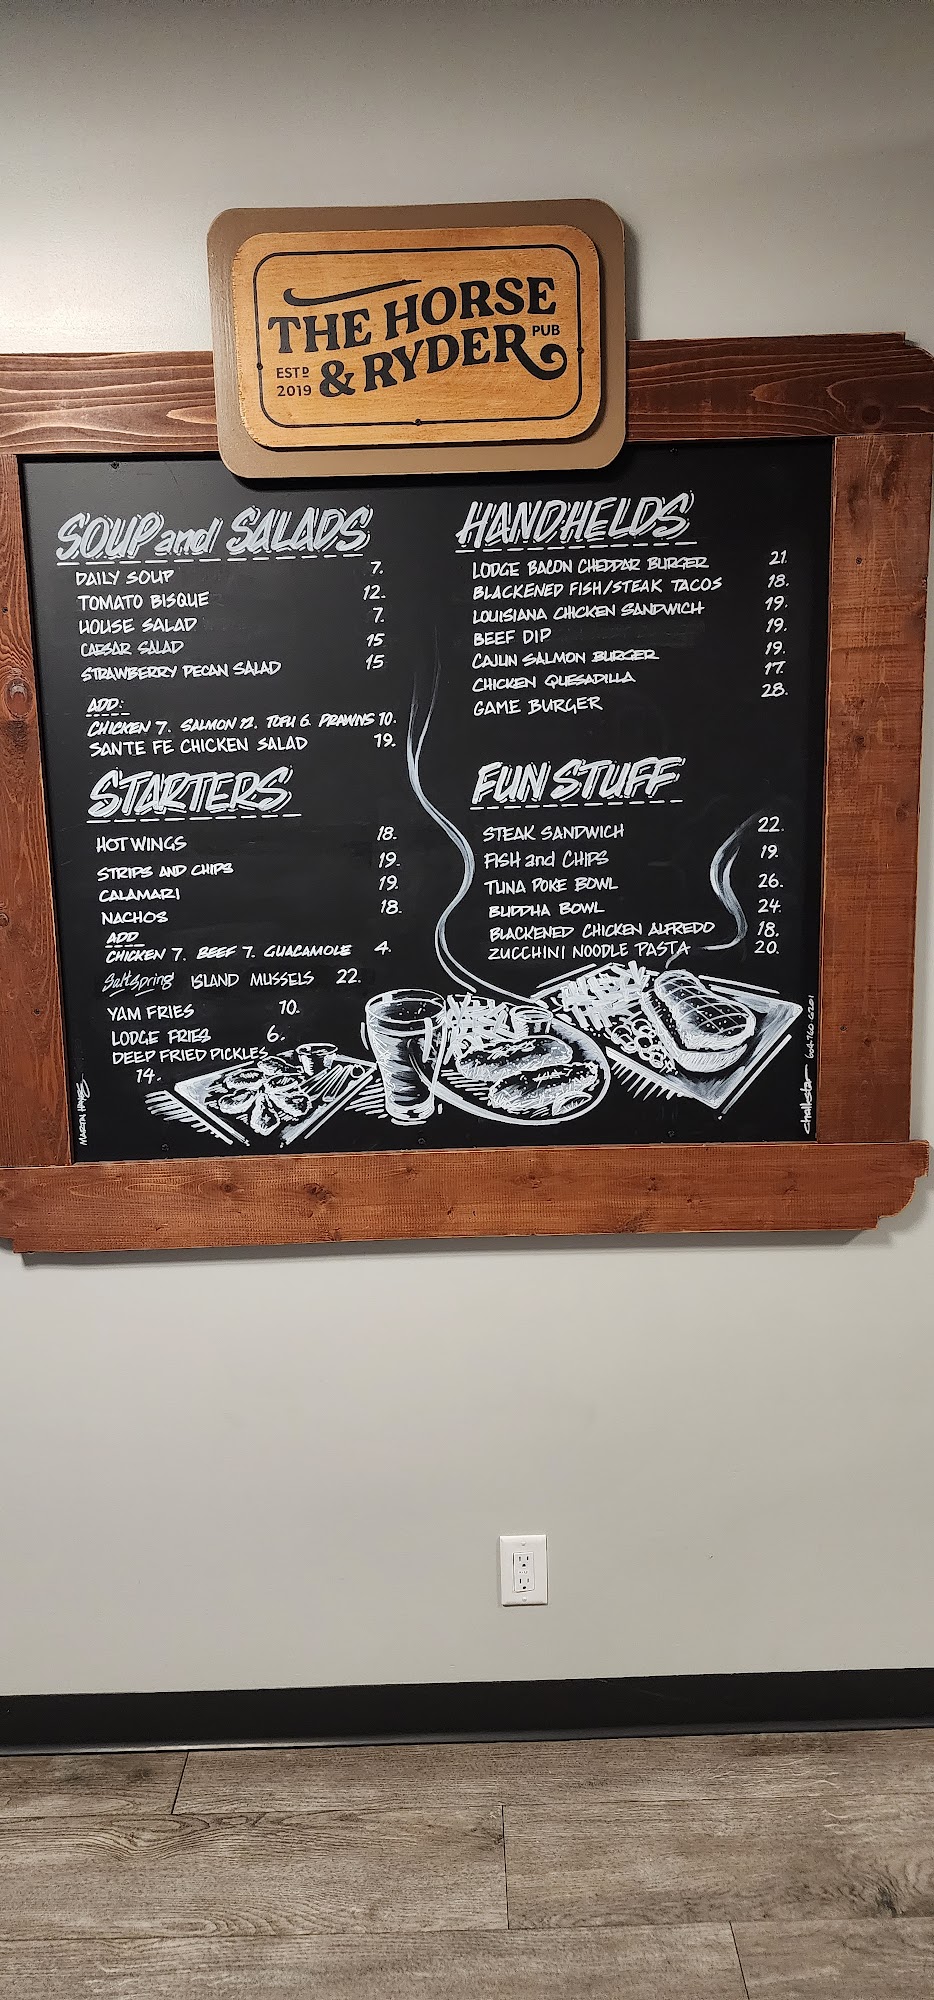 THE HORSE
& RYDER PUB
ESTD
2019
SOUP and SALADS
DAILY SOUP 7.
TOMATO BISQUE 12.
HOUSE SALAD 7.
CAESAR SALAD 15
STRAWBERRY PECAN SALAD 15
ADD:
CHICKEN 7. SALMON 12. TOFU 6. PRAWNS 10.
SANTE FE CHICKEN SALAD 19.
STARTERS
HOT WINGS 18.
STRIPS AND CHIPS 19.
CALAMARI 19.
NACHOS 18.
ADD
CHICKEN 7. BEEF 7. GUACAMOLE 4.
Saltspring ISLAND MUSSELS 22.
YAM FRIES 10.
LODGE FRIES 6.
DEEP FRIED PICKLES
14.
HANDHELDS
LODGE BACON CHEDDAR BURGER 21.
BLACKENED FISH/STEAK TACOS 18.
LOUISIANA CHICKEN SANDWICH 19.
BEEF DIP 19.
CAJUN SALMON BURGER 19.
CHICKEN QUESADILLA 17.
GAME BURGER 28.
FUN STUFF
STEAK SANDWICH 22.
FISH and CHIPS 19.
TUNA POKE BOWL 26.
BUDDHA BOWL 24.
BLACKENED CHICKEN ALFREDO 18.
ZUCCHINI NOODLE PASTA 20.
chalkstar